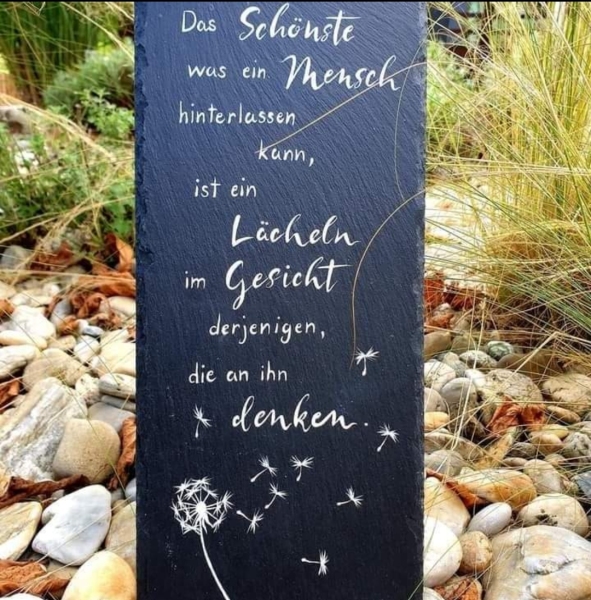 Das Schönste
was ein Mensch
hinterlassen
kann,
ist ein
Lächeln
im Gesicht
derjenigen,
die an ihn
denken.